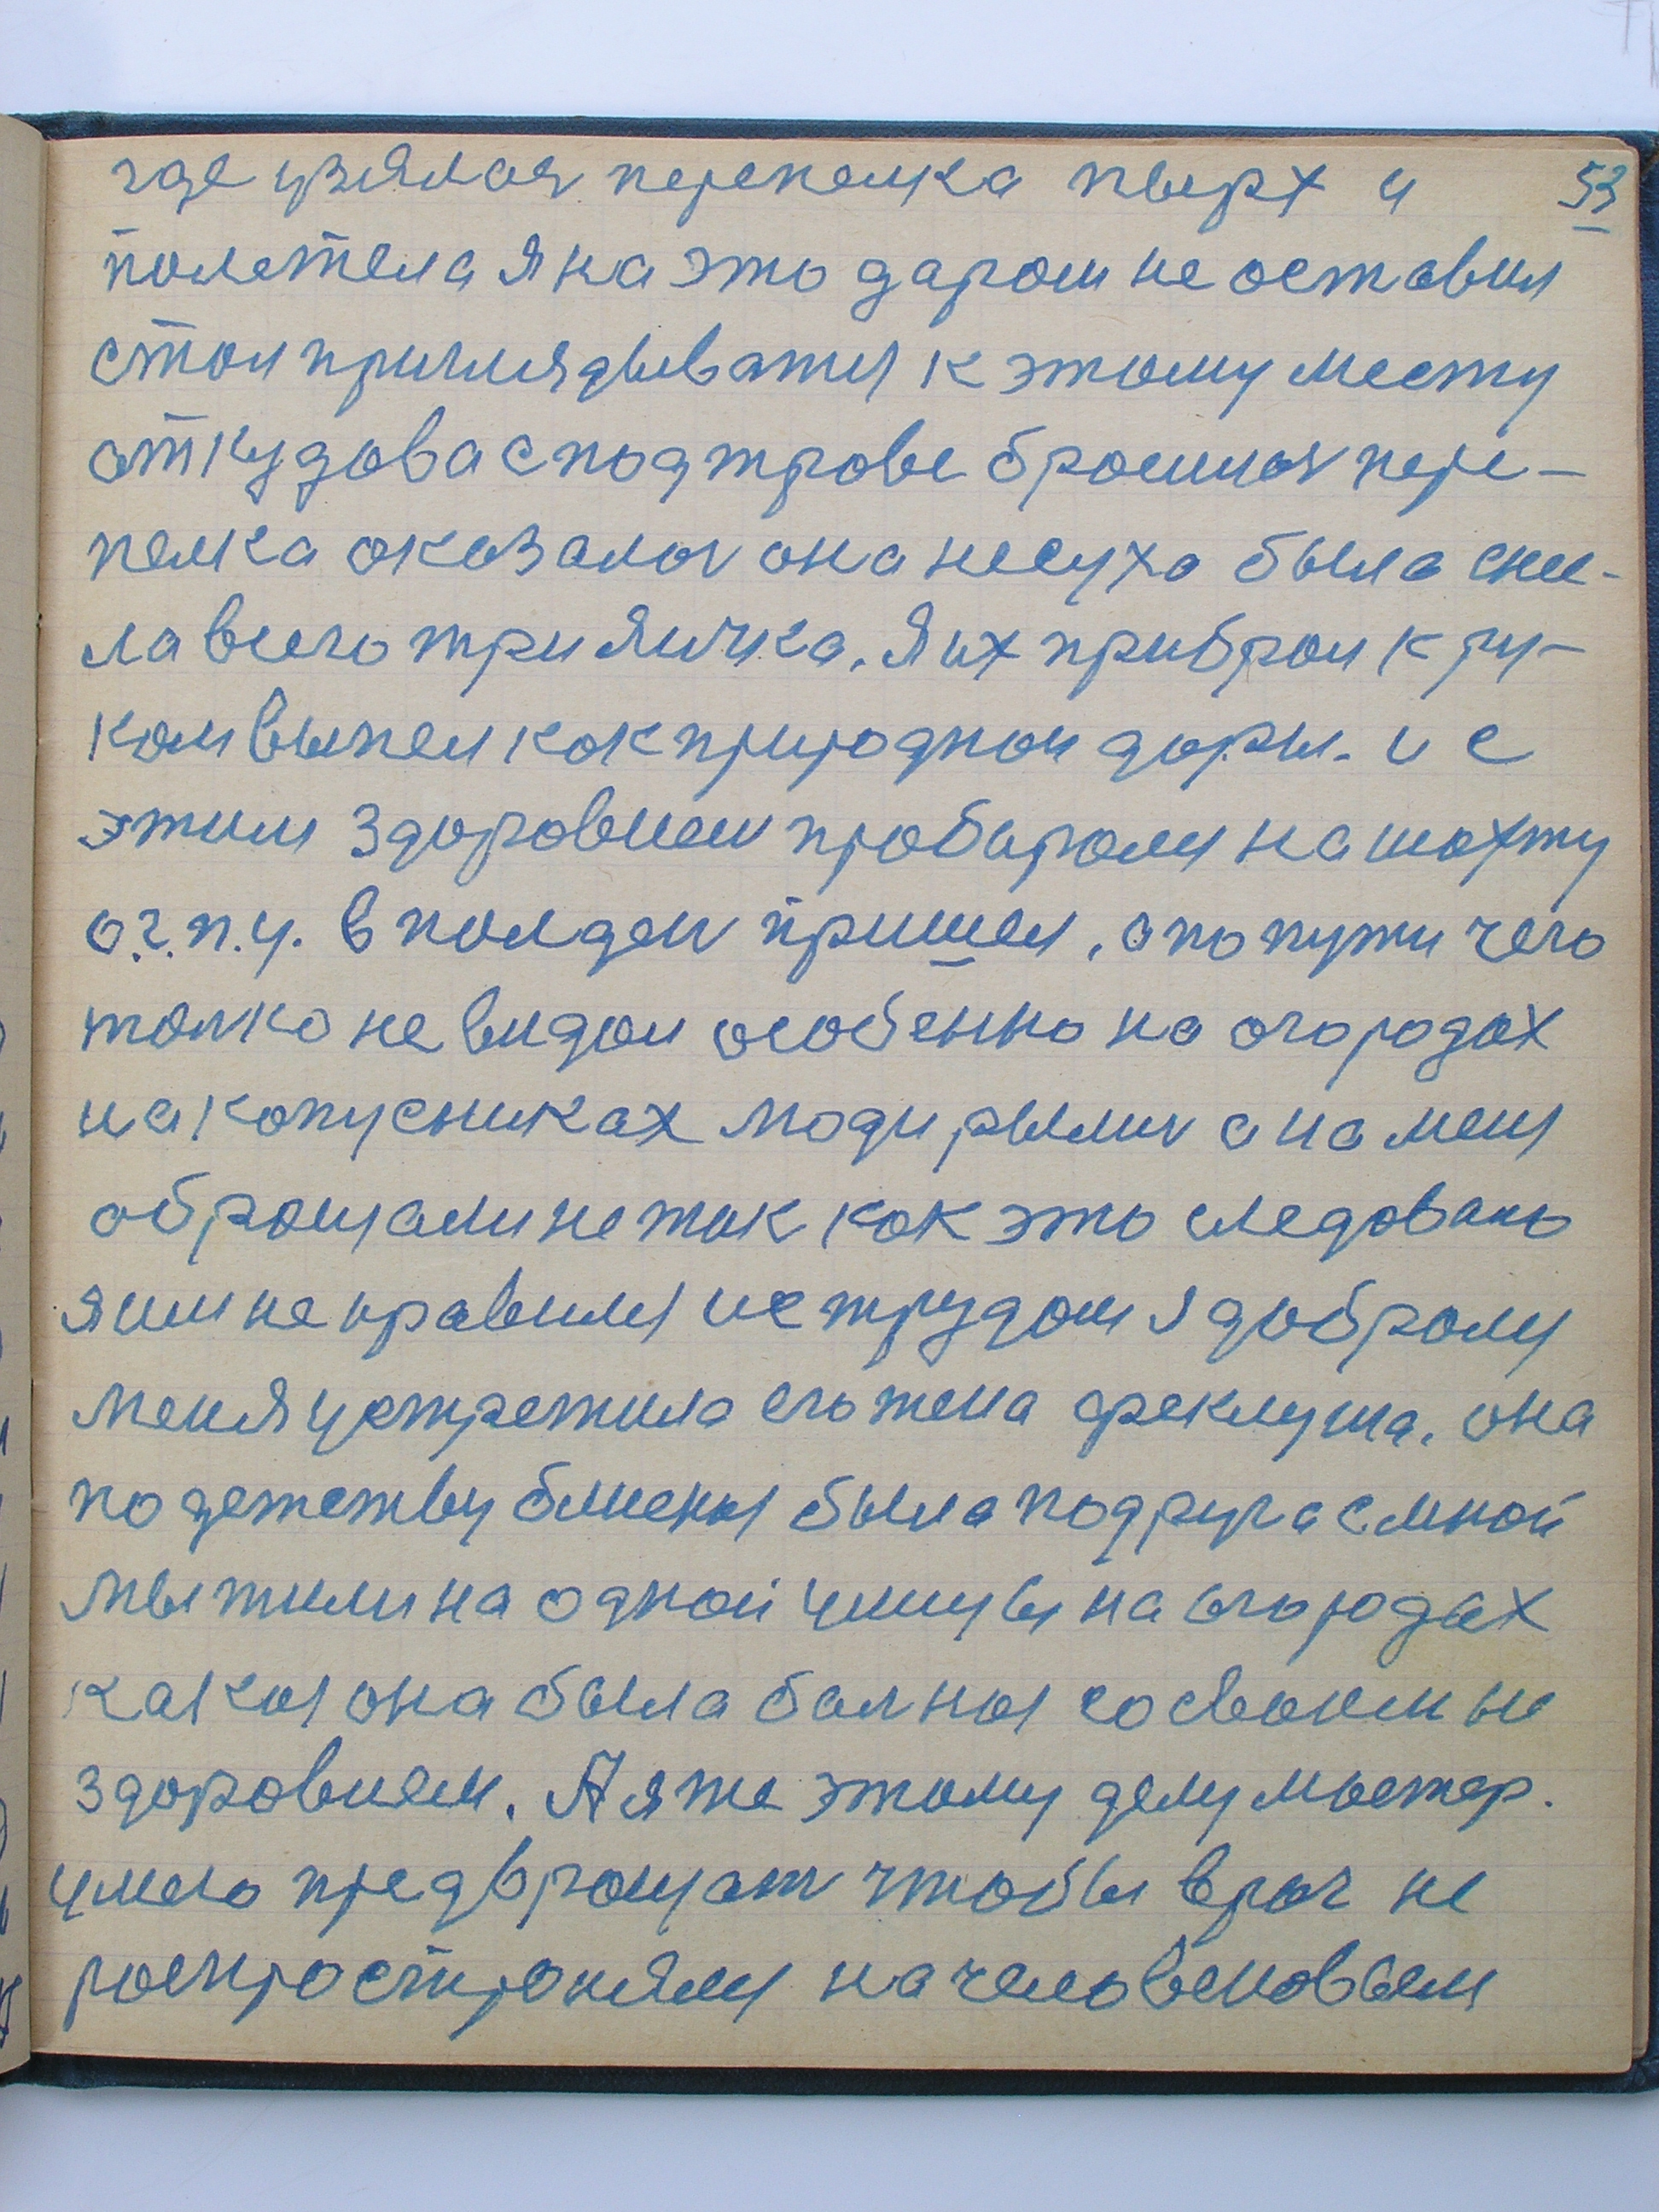 где узялась перепелка пырх и 53
полетела я на это даром не оставил
стал приглядыватся к этому месту
откудова с под траве бросилась пере-
пелка оказалось она несуха была сне-
ла всего три яичка. Я их прибрал к ру-
кам выпел как природнои дары. и с
этим здоровием пробирался на шахту
о.г.п.у. в полдень пришел, а по пути чего
толко не видал особенно на огородах
на капусниках люди рылись а на меня
обращали не так как это следовало
я им не нравился и с трудом я добрался
меня устретила его жена феклуша. она
по детству ближеня была подруга с мной
мы жили на одной улицы на огородах
какая она была балная со своем не
здоровием. А я же этому делу мастер.
умею предвращать чтобы враг не
распространялся на человековым